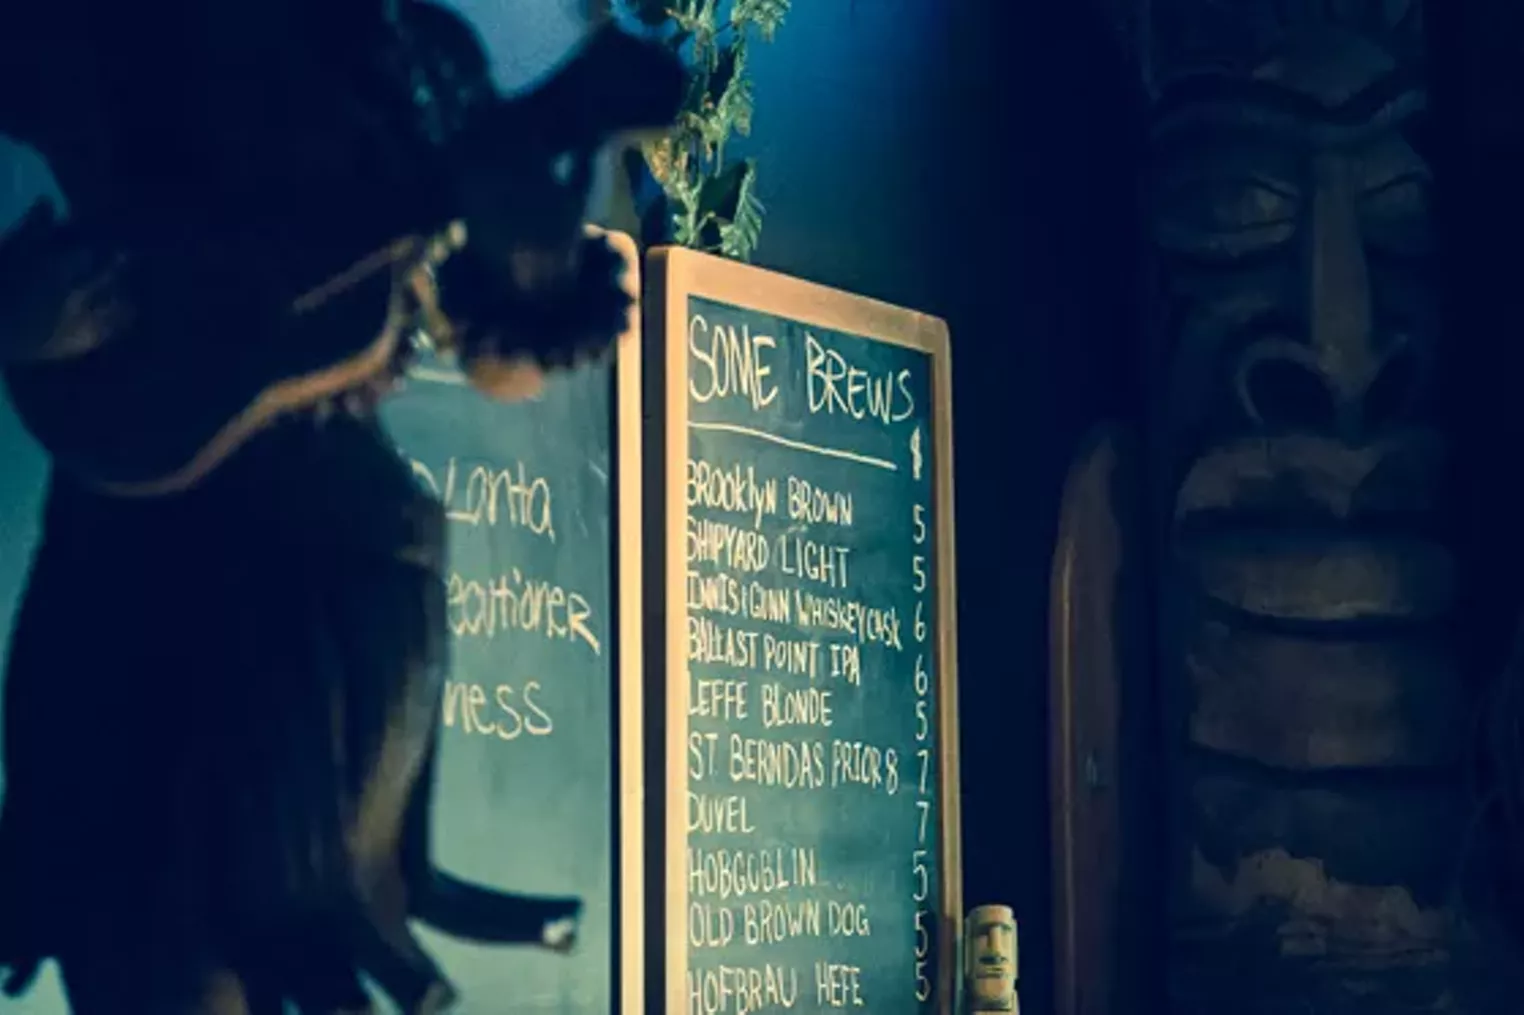 Lanta
ness
SOME BREWS
$
BROOKLYN BROWN 5
SHIPYARD LIGHT 5
INNIS & GUNN WHISKEY CASK 6
BALLAST POINT IPA 6
LEFFE BLONDE 5
ST. BERNDAS PRIOR 8 7
DUVEL 7
HOBGOBLIN 5
OLD BROWN DOG 5
HOFBRAU HEFE 5